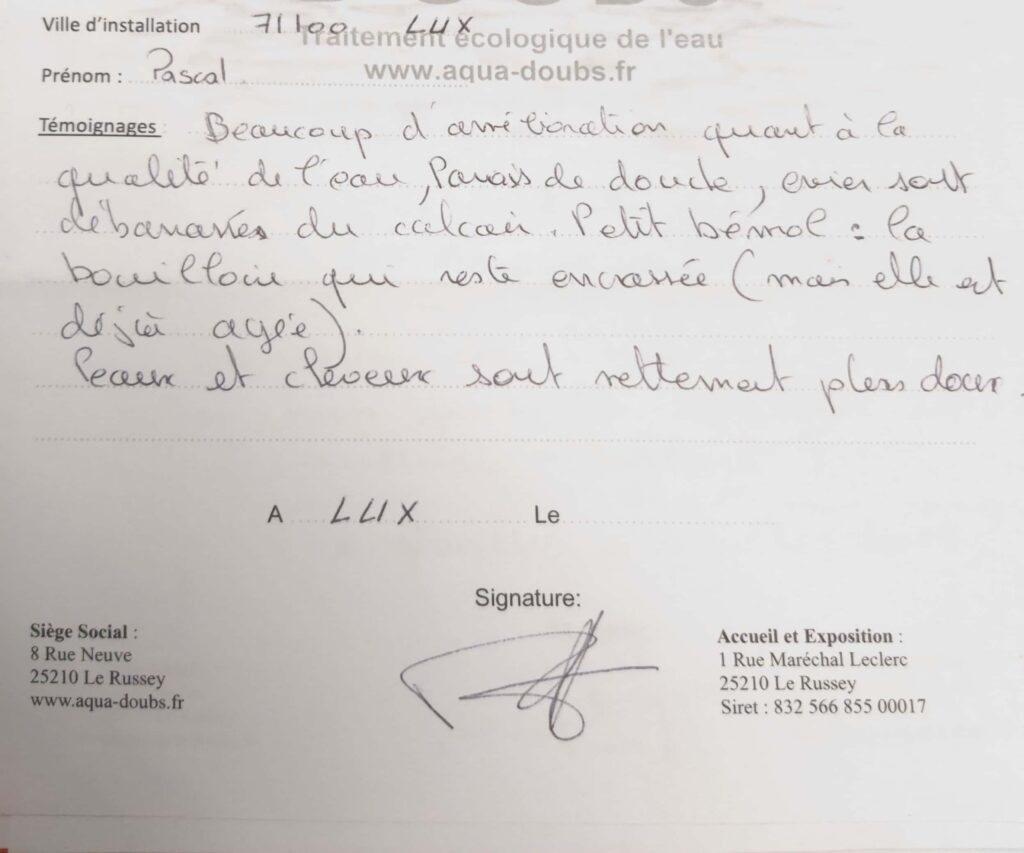 Ville d'installation 71100 LUX
Traitement écologique de l'eau
Prénom : Pascal
www.aqua-doubs.fr
Témoignages : Beaucoup d'amélioration quant à la
qualité de l'eau, Parois de douche, evier sont
débarassés du calcair. Petit bémol : la
bouilloir qui reste encrassée (mais elle est
déjà agée).
Peaux et cheveux sont nettement plus doux.
A LUX Le
Signature:
Siège Social :
8 Rue Neuve
25210 Le Russey
www.aqua-doubs.fr
Accueil et Exposition :
1 Rue Maréchal Leclerc
25210 Le Russey
Siret : 832 566 855 00017